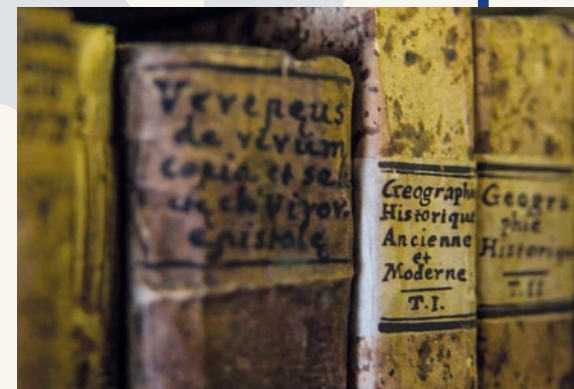 Verepeus
de rerum
copia et
epistole
Geographi
Historique
Ancienne
et
Moderne
T.I.
Geogra
phie
Historiq
T.II